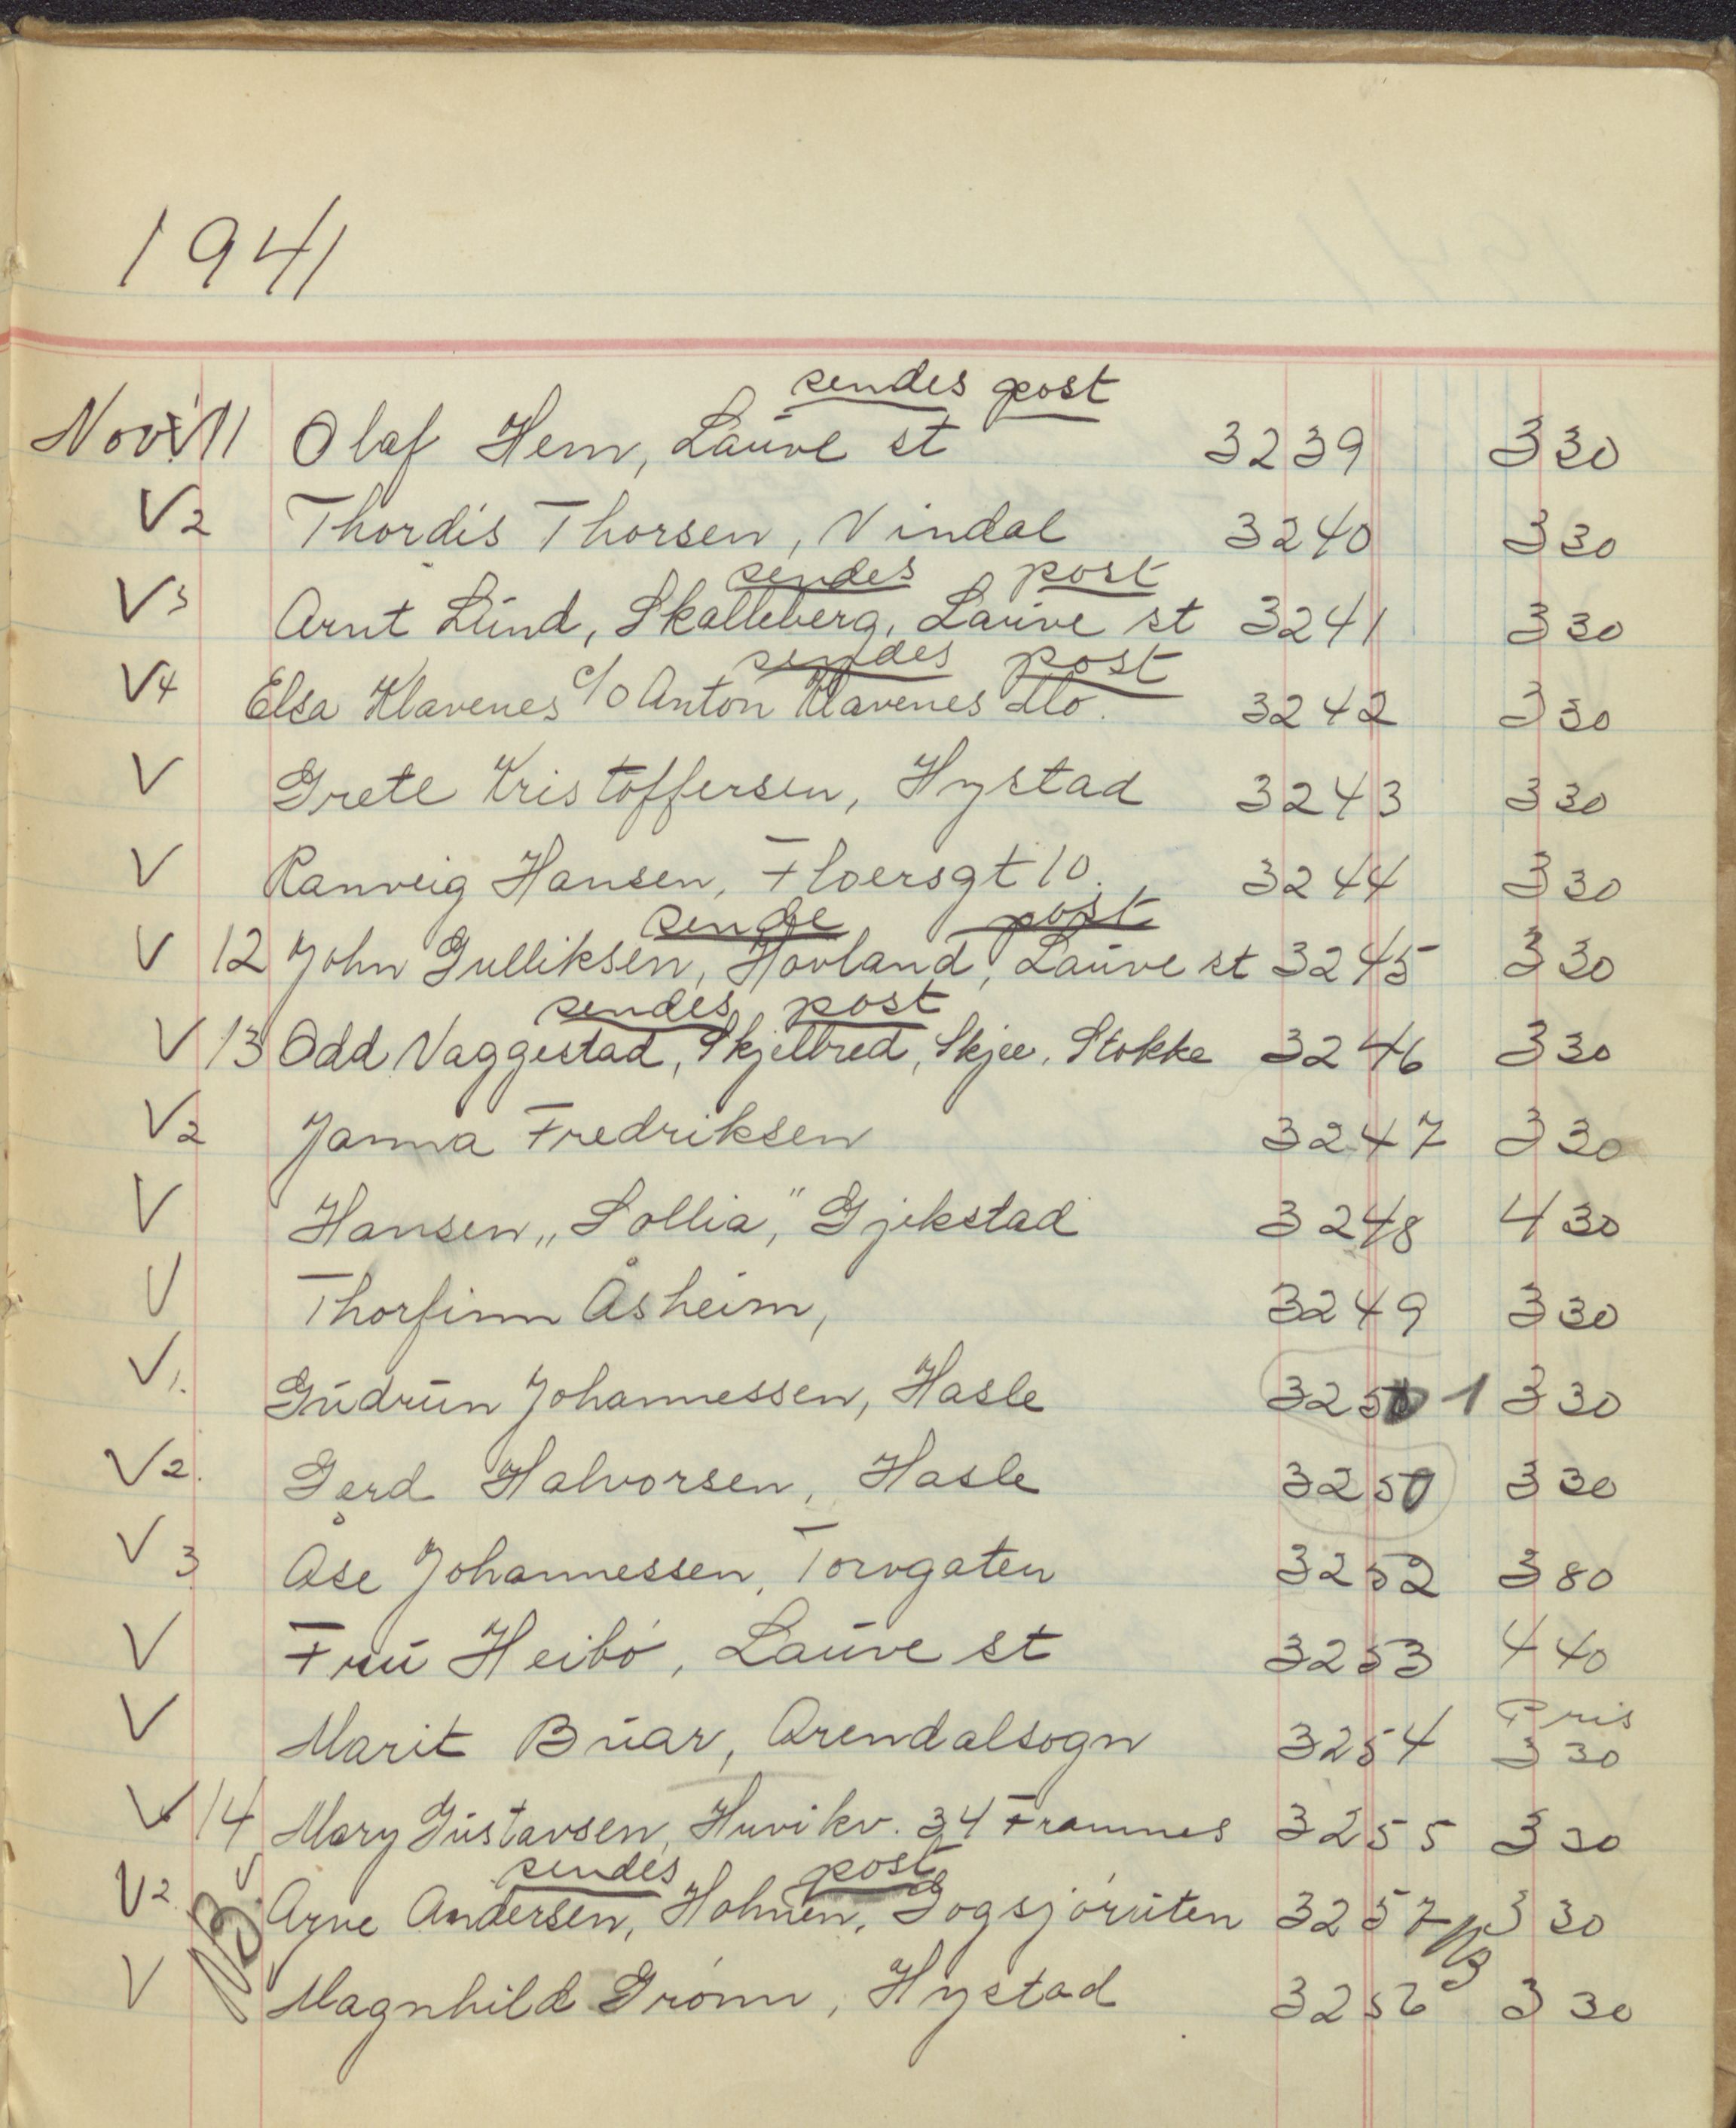 1941
sendes post
Nov. V 11 Olaf Hem, Lauve st 3239 3 30
V2 Thordis Thorsen, Vindal 3240 3 30
sendes post
V3 Arnt Lund, Skalleberg, Lauve st 3241 3 30
sendes post
V4 Elsa Klavenes c/o Anton Klavenes 3242 3 30
V Grete Kristoffersen, Hystad 3243 3 30
V Ranveig Hansen, Floersgt 10. 3244 3 30
sende post
V 12 John Gulliksen, Hovland, Lauve st 3245 3 30
sendes post
V 13 Odd Vaggestad, Skjelbred, Skjee, Stokke 3246 3 30
V2 Janna Fredriksen 3247 3 30
V Hansen „Sollia," Gjekstad 3248 4 30
V Thorfinn Åsheim, 3249 3 30
V1. Gudrun Johannessen, Hasle 3250 1 3 30
V2. Gerd Halvorsen, Hasle 3250 3 30
V3 Åse Johannessen, Torvgaten 3252 3 80
V Fru Heibó, Lauve st 3253 4 40
Pris
V Marit Buar, Arendalsogn 3254 3 30
V 14 Mary Gustavsen, Huvikv. 34 Framnes 3255 3 30
sendes post
V2 NB V Arne Andersen, Holmen, Gogsjóruten 3257 NB 3 30
V Magnhild Grónn, Hystad 3256 3 30